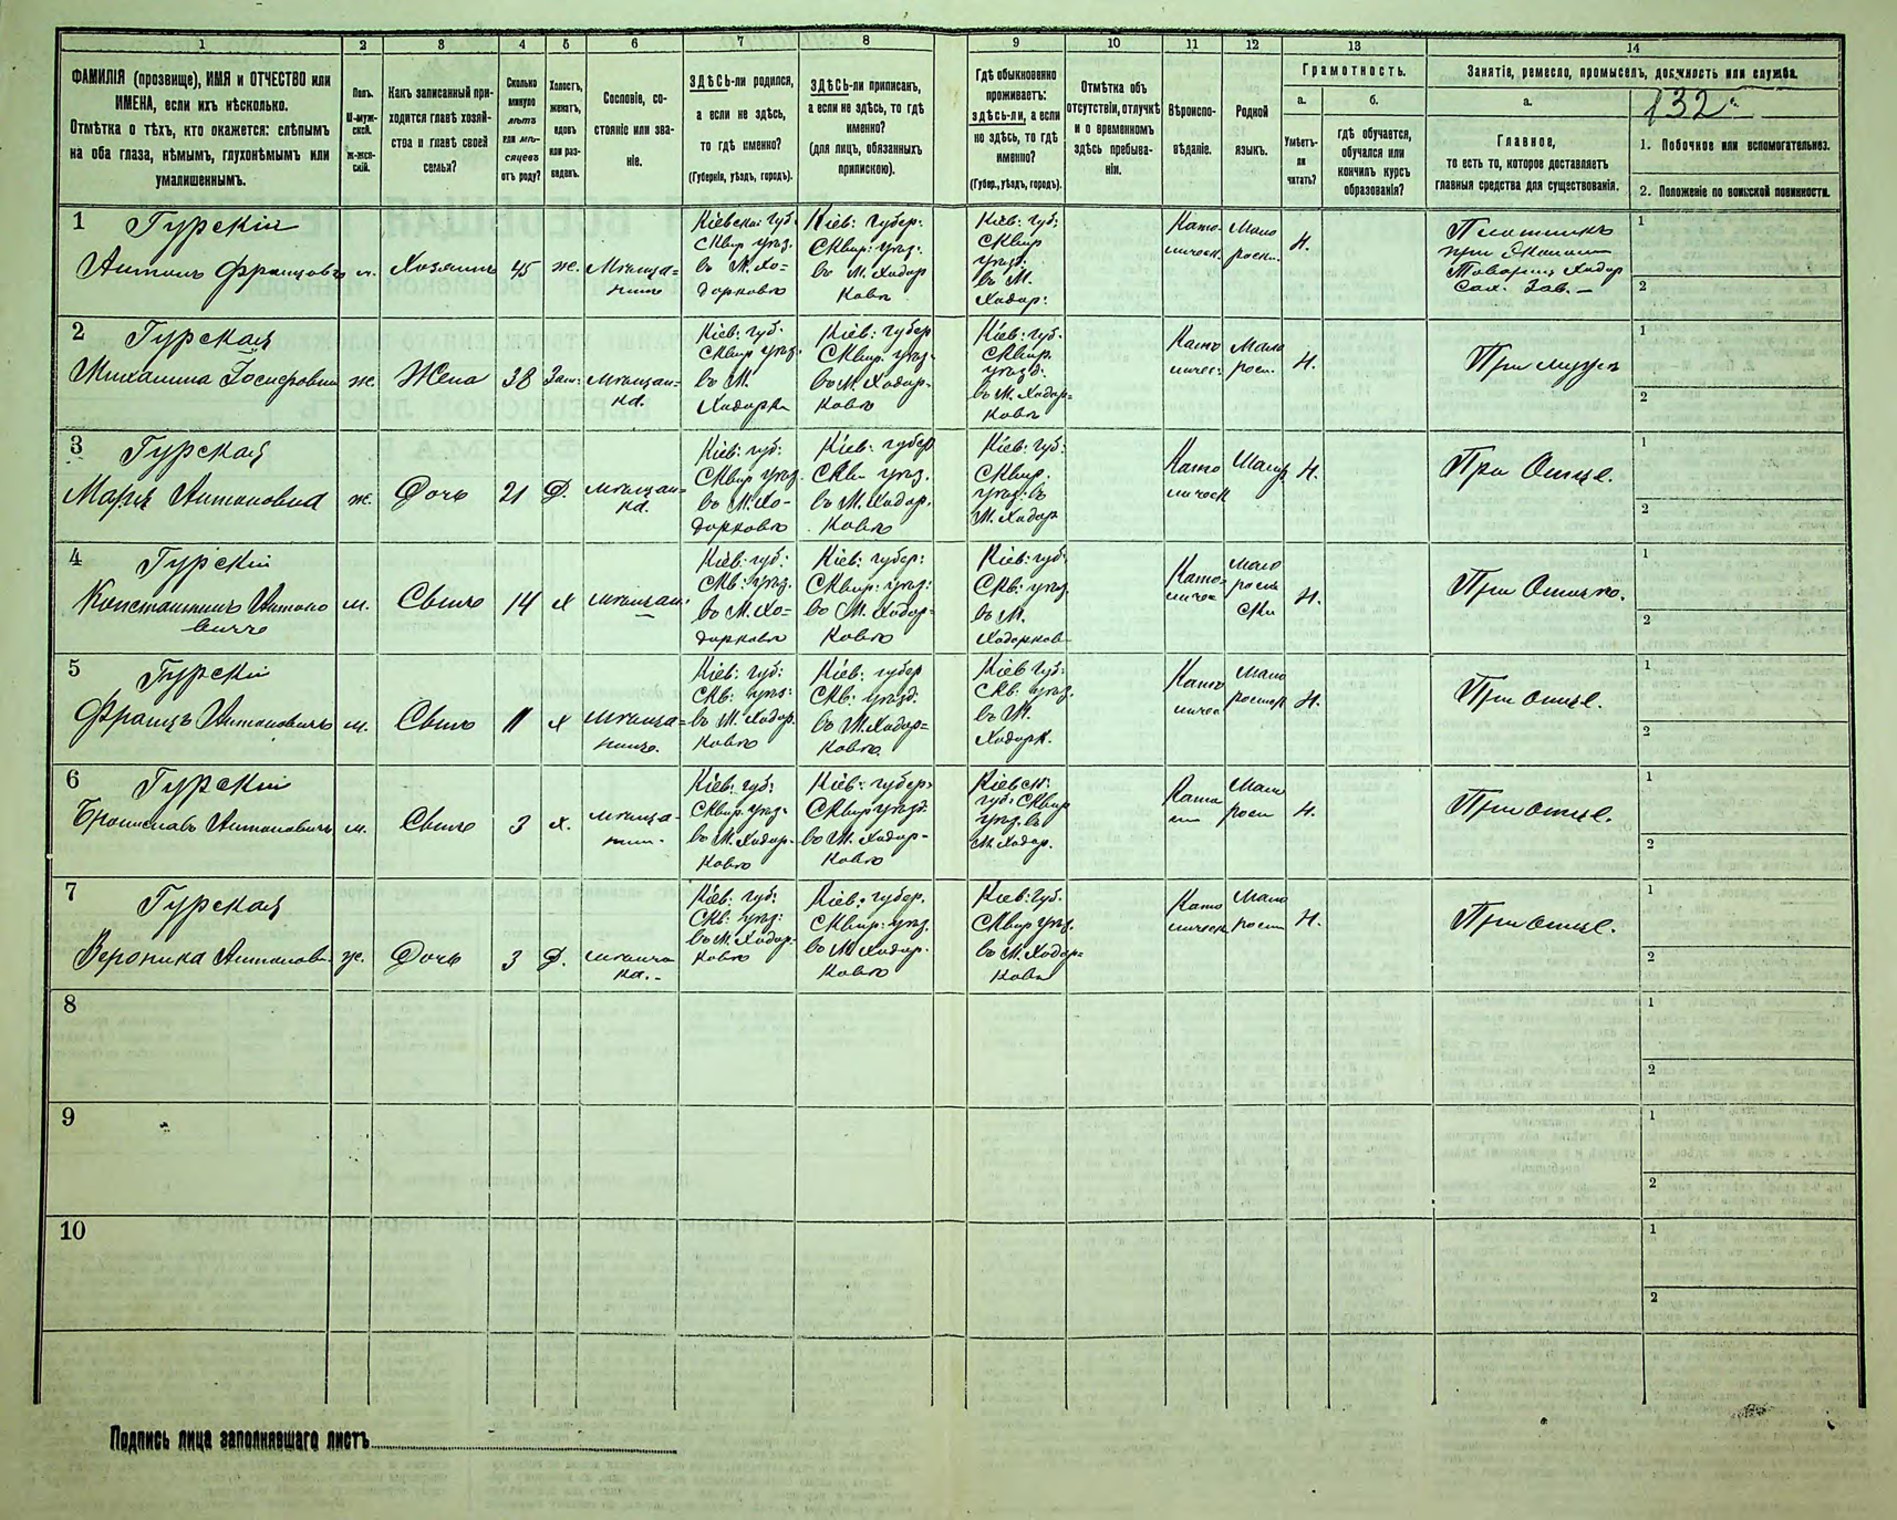 1 2 3 4 5 6 7 8 9 10 11 12 13 14
ФАМИЛІЯ (прозвище), ИМЯ и ОТЧЕСТВО или
ИМЕНА, если ихъ нѣсколько.
Отмѣтка о тѣхъ, кто окажется: слѣпымъ
на оба глаза, нѣмымъ, глухонѣмымъ или
умалишеннымъ.
Полъ.
М-муж-
ской.
Ж-жен-
скій.
Какъ записанный при-
ходится главѣ хозяй-
ства и главѣ своей
семьи?
Сколько
минуло
лѣтъ
или мѣ-
сяцевъ
отъ роду?
Холостъ,
женатъ,
вдовъ
или раз-
веденъ.
Сословіе, со-
стояніе или зва-
ніе.
ЗДѢСЬ-ли родился,
а если не здѣсь,
то гдѣ именно?
(Губернія, уѣздъ, городъ).
ЗДѢСЬ-ли приписанъ,
а если не здѣсь, то гдѣ
именно?
(для лицъ, обязанныхъ
припискою).
Гдѣ обыкновенно
проживаетъ:
здѣсь-ли, а если
не здѣсь, то гдѣ
именно?
(Губер., уѣздъ, городъ).
Отмѣтка объ
отсутствіи, отлучкѣ
и о временномъ
здѣсь пребыва-
ніи.
Вѣроиспо-
вѣданіе.
Родной
языкъ.
Грамотность.
а.
Умѣетъ-
ли
читать?
б.
гдѣ обучается,
обучался или
кончилъ курсъ
образованія?
Занятіе, ремесло, промыселъ, должность или служба.
а.
Главное,
то есть то, которое доставляетъ
главныя средства для существованія.
132
1. Побочное или вспомогательное.
2. Положеніе по воинской повинности.
1 Гурскій
Антонъ Францовъ м. Хозяинъ 45 ж. Мѣща-
нинъ
Кіевской губ.
Сквир. уѣз.
въ М. Хо-
дорковѣ
Кіев: губер:
Сквир: уѣз:
въ М. Ходор
ковѣ
Кіев: губ:
Сквир
уѣзд.
въ М.
Ходор:
Като-
лическ.
Мало
росс.
Н.
Плотникъ
при
Товарищ. Ходор
Сах. Зав. —
1
2
2 Гурская
Михалина Іосифовна ж. Жена 38 Зам: мѣщан-
ка.
Кіев: губ.
Сквир уѣз.
въ М.
Ходорк
Кіев: губер
Сквир: уѣз.
въ М. Ходор-
ковѣ
Кіев: губ.
Сквир.
уѣзд.
въ М. Ходор-
ковѣ
Като
личес:
Мало
росс.
Н.
При мужѣ
1
2
3 Гурская
Марія Антоновна ж. Дочь 21 Д. мѣщан-
ка.
Кіев: губ:
Сквир уѣз.
въ М. Хо-
дорковѣ
Кіев: губер
Скв. уѣз.
въ М. Ходор.
ковѣ
Кіев: губ:
Сквир.
уѣз: въ
М. Ходор
Като
лическ
Н.
При Отце.
1
2
4 Гурскій
Константинъ Антоно
вичъ м. Сынъ 14 х мѣщан.
Кіев: губ:
Скв: уѣз.
въ М. Хо-
дорковѣ
Кіев: губер:
Сквир: уѣз:
въ М. Ходор-
ковѣ
Кіев: губ:
Скв: уѣз.
въ М.
Ходорков
Като-
личес
Мало
росс
ски
Н.
1
2
5 Гурскій
Францъ Антоновичъ м. Сынъ 11 х мѣща-
нинъ.
Кіев: губ:
Скв: уѣз:
въ М. Ходор.
ковѣ
Кіев: губер
Скв: уѣзд.
въ М. Ходор-
ковѣ.
Кіев губ:
Скв: уѣз.
въ М.
Ходорк.
Като
личес
Мало
росс
Н.
При отце.
1
2
6 Гурскій
Брониславъ Антоновичъ м. Сынъ 3 х. мѣща-
нин.
Кіев: губ:
Сквир. уѣз.
въ М. Ходор-
ковѣ
Кіев: губер.
Сквир уѣзд.
въ М. Ходор-
ковѣ
Кіевск:
губ. Сквир
уѣз. въ
М. Ходор.
Като
Мало
росс
Н.
При отце.
1
2
7 Гурская
Вероника Антонов. ж. Дочь 3 Д. мѣщан
ка.-
Кіев: губ:
Скв: уѣз:
въ М. Ходор-
ковѣ
Кіев: губер.
Сквир: уѣз.
въ М Ходор.
ковѣ
Кіев: губ.
Сквир уѣз.
въ М. Ходор-
ковѣ
Като
лическ
Мало
росс
Н.
При отце.
1
2
8
1
2
9
1
2
10
1
2
Подпись лица заполнявшаго листъ